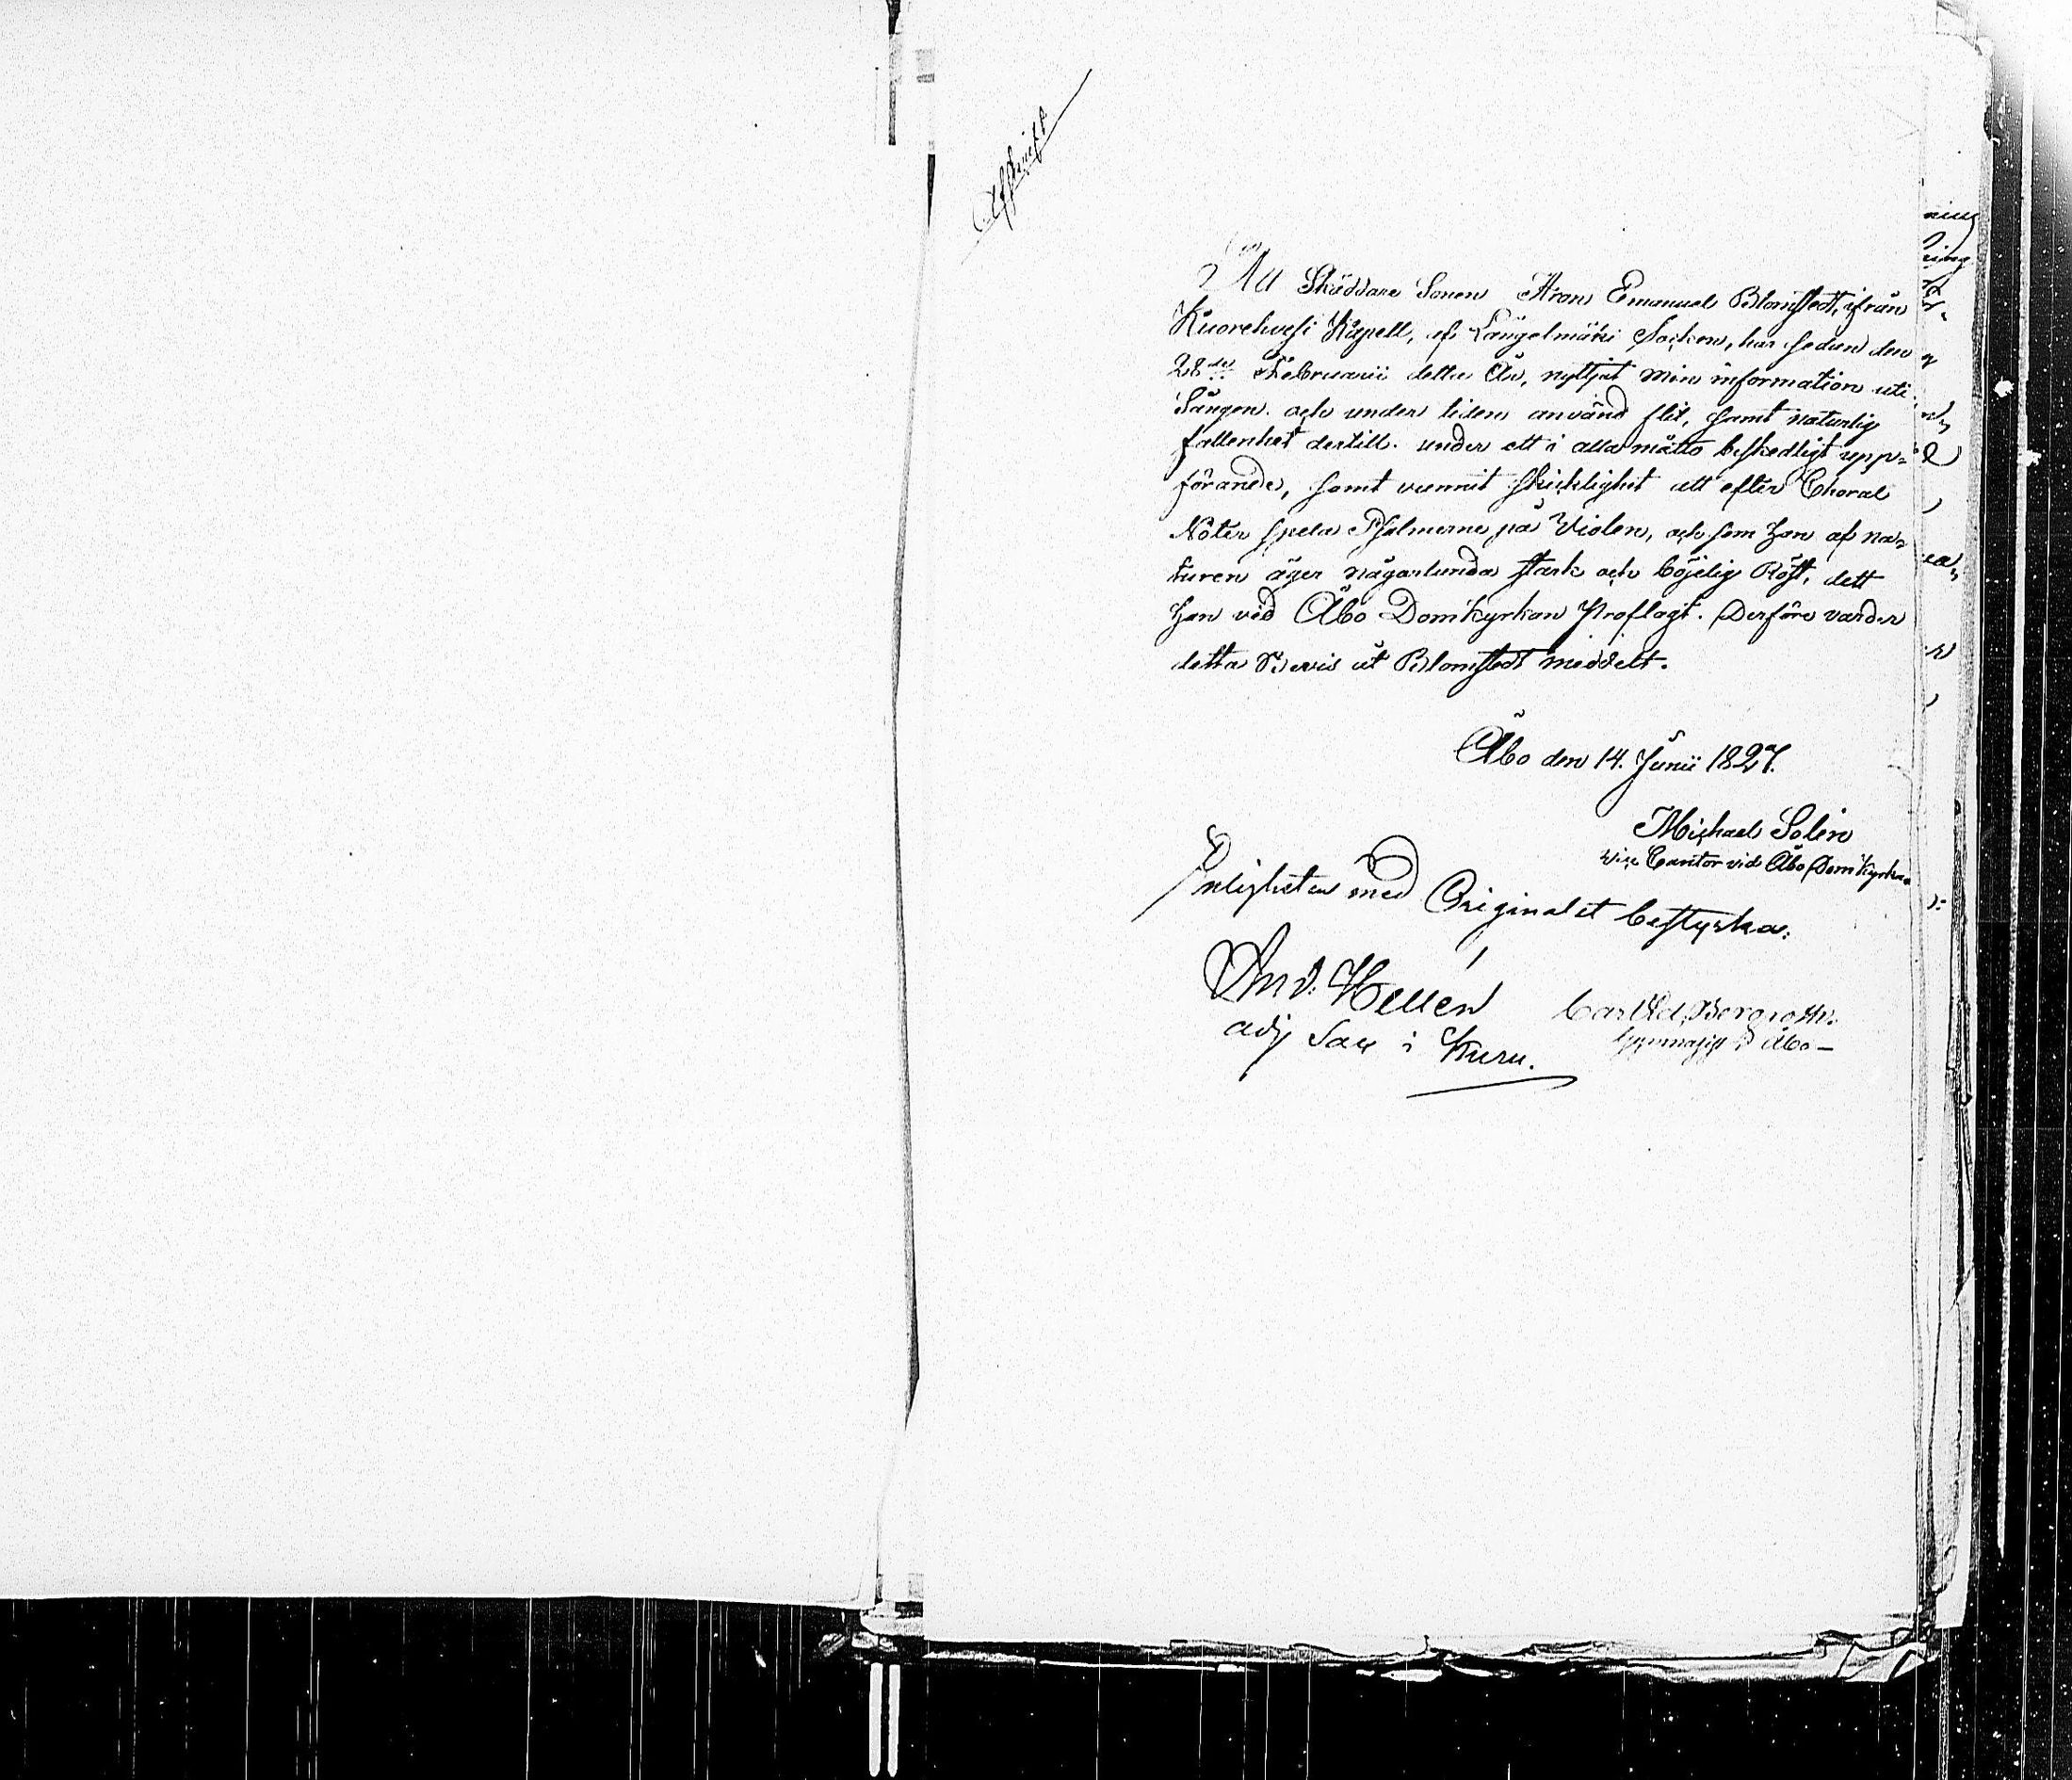 Afskrift
Att Skräddare Sonen Aron Emanuel Blomstedt, ifrån
Kuorehvesi Kapell, af Längelmäki Socken, har sedan den
28de Februarii detta År, nyttjat min information uti
Sången. och under tiden använd flit, samt naturlig
fallenhet dertill. under ett i alla måtto beskedligt upp=
förande, samt vunnit skicklighet att efter Choral
Noter spela Psalmerne på Violen, och som han af na=
turen äger någorlunda stark och böjelig Röst, dett
han vid Åbo Domkyrkan Proflagt. Derföre varder
detta Bevis åt Blomstedt meddelt.
Åbo den 14. Junii 1827.
Michael Solin
Vice Cantor vid Åbo Domkyrka
Enligheten med Originalet bestyrka:
And. Hellén
adj Sac i Kuru.
Carl Bergroth.
Gymnasist i Åbo